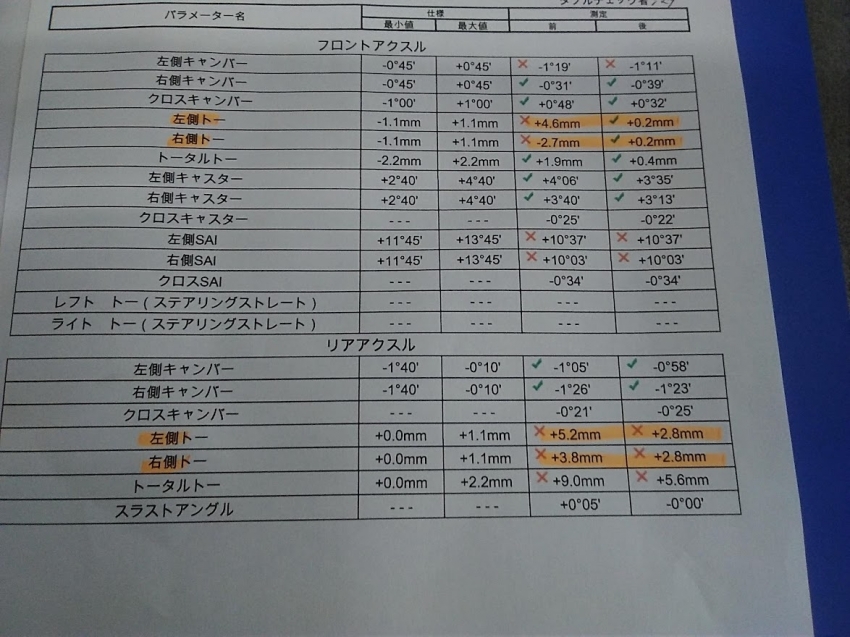 パラメーター名 仕様 測定
最小値 最大値 前 後
フロントアクスル
左側キャンバー -0°45' +0°45' ✕ -1°19' ✕ -1°11'
右側キャンバー -0°45' +0°45' ✓ -0°31' ✓ -0°39'
クロスキャンバー -1°00' +1°00' ✓ +0°48' ✓ +0°32'
左側トー -1.1mm +1.1mm ✕ +4.6mm ✓ +0.2mm
右側トー -1.1mm +1.1mm ✕ -2.7mm ✓ +0.2mm
トータルトー -2.2mm +2.2mm ✓ +1.9mm ✓ +0.4mm
左側キャスター +2°40' +4°40' ✓ +4°06' ✓ +3°35'
右側キャスター +2°40' +4°40' ✓ +3°40' ✓ +3°13'
クロスキャスター --- --- -0°25' -0°22'
左側SAI +11°45' +13°45' ✕ +10°37' ✕ +10°37'
右側SAI +11°45' +13°45' ✕ +10°03' ✕ +10°03'
クロスSAI --- --- -0°34' -0°34'
レフト トー(ステアリングストレート) --- --- --- ---
ライト トー(ステアリングストレート) --- --- --- ---
リアアクスル
左側キャンバー -1°40' -0°10' ✓ -1°05' ✓ -0°58'
右側キャンバー -1°40' -0°10' ✓ -1°26' ✓ -1°23'
クロスキャンバー --- --- -0°21' -0°25'
左側トー +0.0mm +1.1mm ✕ +5.2mm ✕ +2.8mm
右側トー +0.0mm +1.1mm ✕ +3.8mm ✕ +2.8mm
トータルトー +0.0mm +2.2mm ✕ +9.0mm ✕ +5.6mm
スラストアングル --- --- +0°05' -0°00'